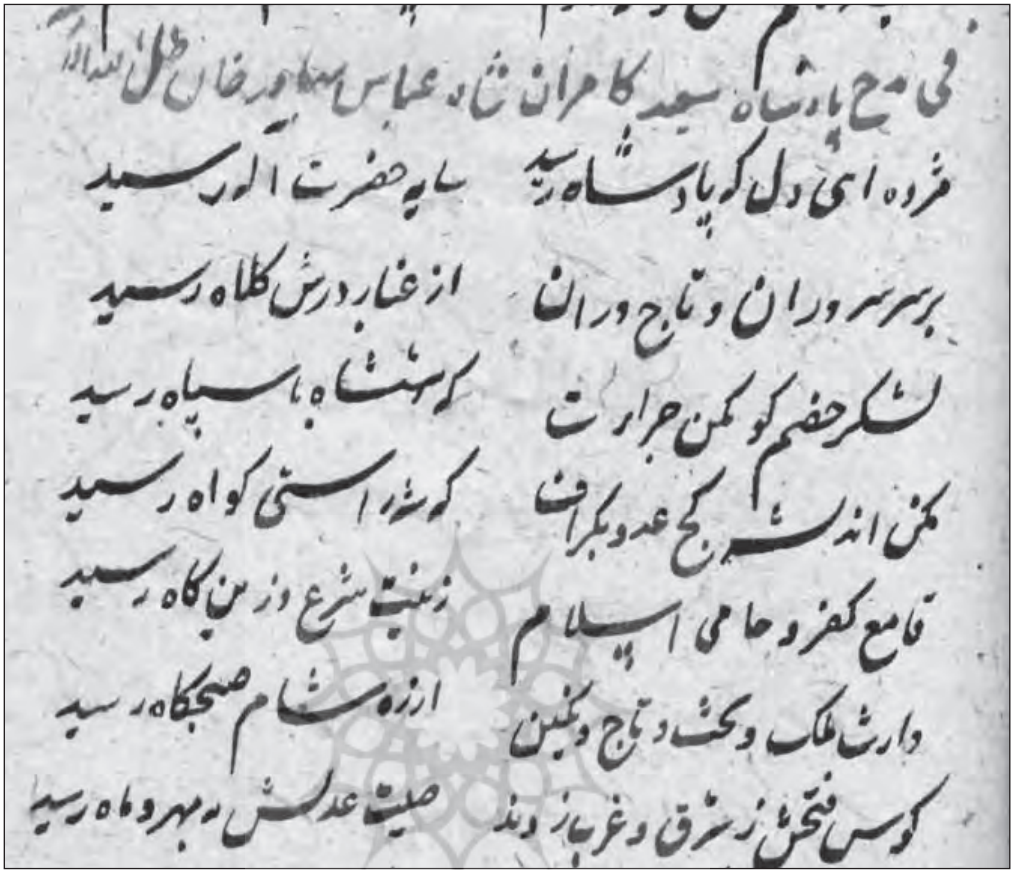 فی مدح پادشاه سعید کامران شاه عباس بهادر خان ظل الله
مژده ای دل که پادشاه رسید سایه حضرت اله رسید
بر سر سروران و تاج وران از غبار درش کلاه رسید
لشکر خصم کو مکن جرات که شهنشاه با سپاه رسید
مکن اندیشه کج عدو بگزاف که شه راستی گواه رسید
قامع کفر و حامی اسلام زینت شرع و زین گاه رسید
وارث ملک و تخت و تاج و نگین از ره شام صبحگاه رسید
کوس فتحش ز شرق و غرب زدند صیت عدلش به مهر و ماه رسید